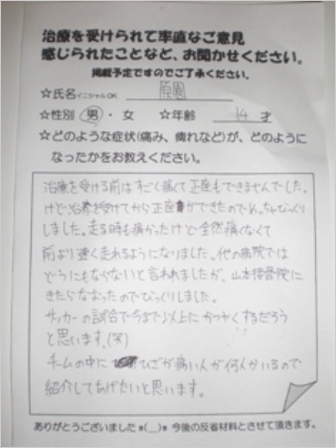 治療を受けられて率直なご意見
感じられたことなど、お聞かせください。
掲載予定ですのでご了承ください。
☆氏名イニシャルOK 原園
☆性別 男・女 ☆年齢 14 才
☆どのような症状(痛み、痺れなど)が、どのように
なったかをお教えください。
治療を受ける前はすごく痛くて正座もできませんでした。
けど治療を受けてから正座ができたのでめっちゃびっくり
しました。走る時も痛かったけど全然痛くなくて
前より速く走れるようになりました。他の病院では
どうにもならないと言われましたが、山本接骨院に
きたらなおったのでびっくりしました。
サッカーの試合で今まで以上にかつやくするだろう
と思います。(笑)
チームの中にひざが痛い人が何人かいるので
紹介してあげたいと思います。
ありがとうございました *(__)* 今後の反省材料とさせて頂きます。